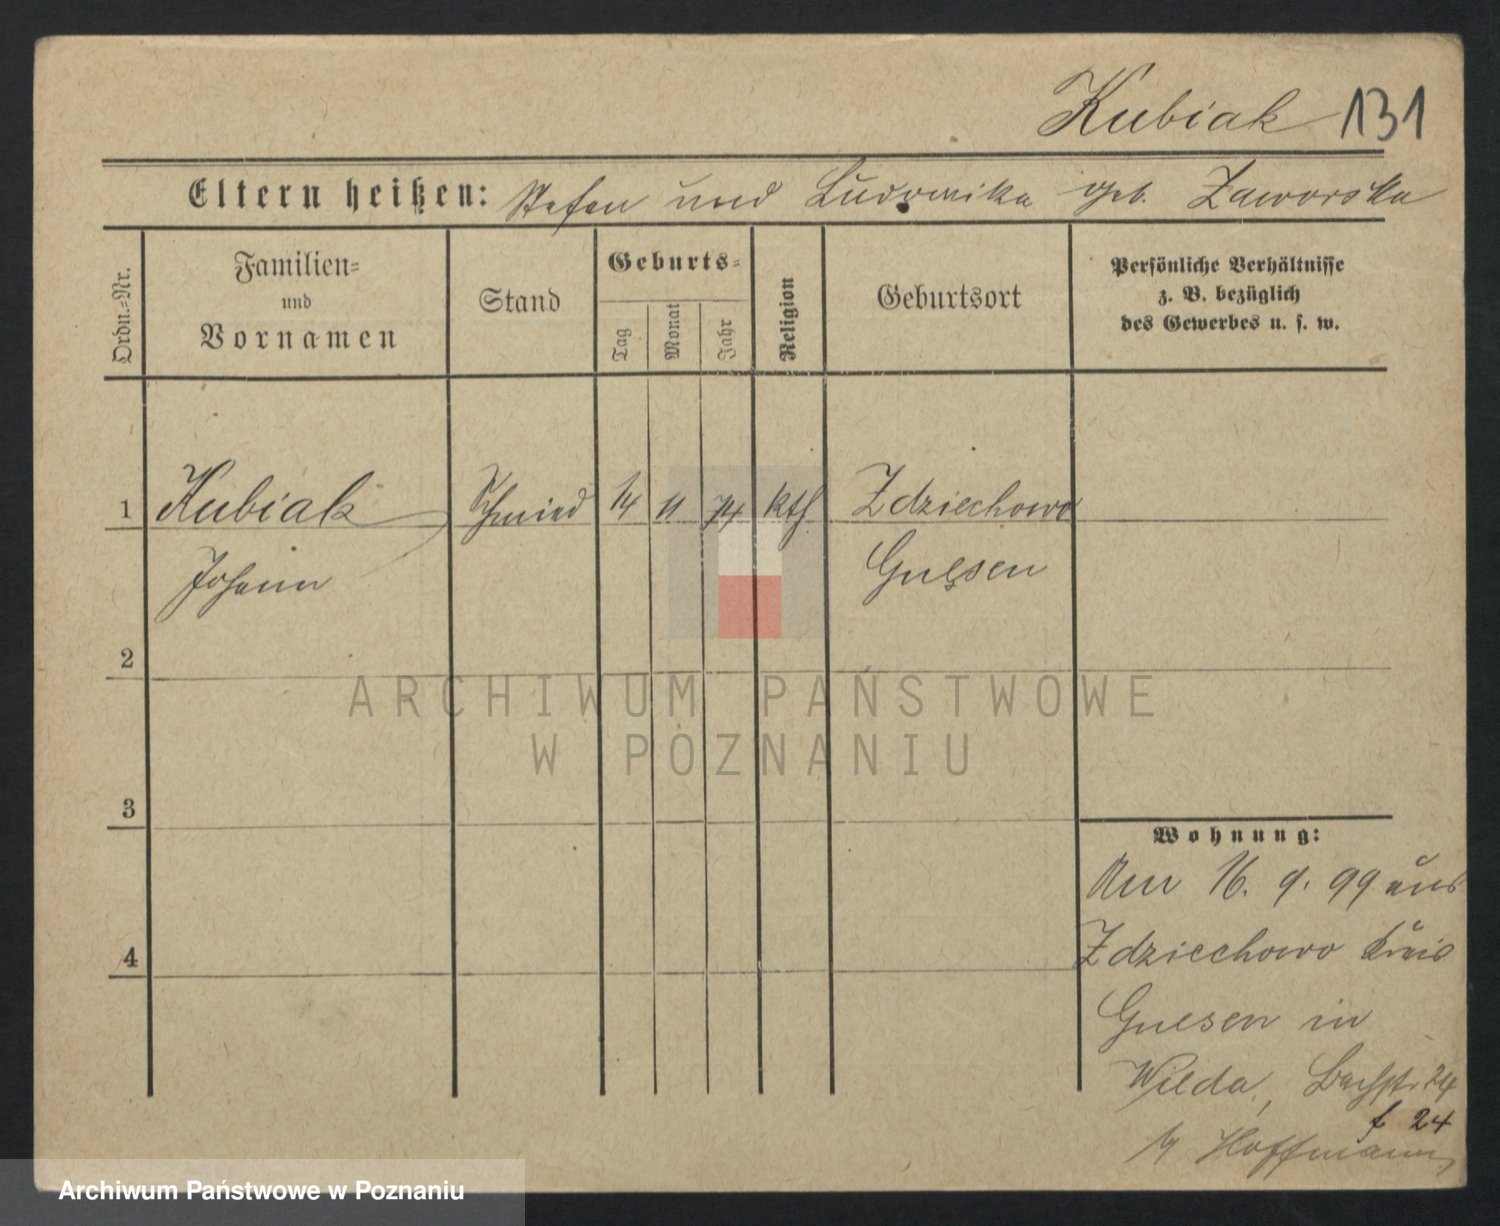 Kubiak 131
Eltern heißen: Stefan und Ludowika geb. Zaworska
Ordn.-Nr.
Familien-
und
Vornamen
Stand
Geburts-
Tag
Monat
Jahr
Religion
Geburtsort
Persönliche Verhältnisse
z. B. bezüglich
des Gewerbes u. s. w.
1 Kubiak Schmied 14 11 74 kth Zdziechowo
Johann Gnesen
2
ARCHIWUM PAŃSTWOWE
W POZNANIU
3
Wohnung:
Am 16. 9. 99 aus
4 Zdziechowo Kreis
Gnesen in
Wilda, Bachstr 24
f 24
Hoffmann
Archiwum Państwowe w Poznaniu